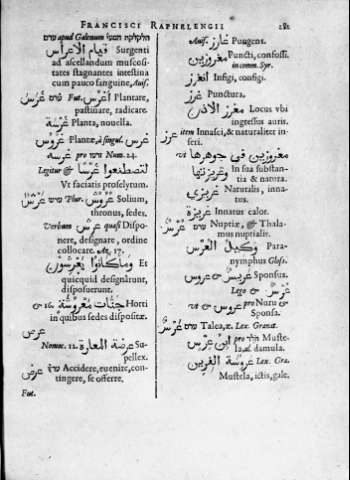 FRANCISCI RAPHELENGII 281
apud Galenum
قيام الاعراس Surgenti
ad assellandum muscosi-
tates stagnantes intestina
cum pauco sanguine, Avis.
غرس Fut. اغرس Plantare,
pastinare, radicare.
غرسة Planta, novella.
غروس Plantæ, à singul. غرس
غرسه pro Num. 24.
Legitur &
Ut faciatis proselytum.
عرش Plur. عروش Solium,
thronus, sedes.
Verbum عرش quasi Dispo-
nere, designare, ordine
collocare. 17.
وما كانوا يعرشون Et
quicquid designarunt,
disposuerunt.
& 16. جنات معروشة Horti
in quibus sedes dispositæ.
عرض
Nomoc. 12. Su-
pellex.
عرض Accidere, evenire, con-
tingere, se offerre.
Fut.
Avis. غارز Pungens.
مغروزين Puncti, confossi.
in comm. Syr.
انغرز Infigi, configi.
غرز Punctura.
مغرز الاذن Locus ubi
ingressus auris.
item غرز Innasci, & naturaliter in-
seri.
مغروزين في جوهرها
وغريزتها In sua substan-
tia & natura.
غريزي Naturalis, inna-
tus.
غريزة Innatus calor.
عرس Nuptiæ, & Thala-
mus nuptialis.
وكيل العرس Para-
nymphus Gloss.
عروس & عريس Sponsus.
Lego & عرس
& عروس pro Nuru &
Sponsa.
غرس Talea, æ. Lex. Granat.
ابن عرس pro Muste-
la, al. damula.
Lex. Gra.
Mustela, ictis, gale.